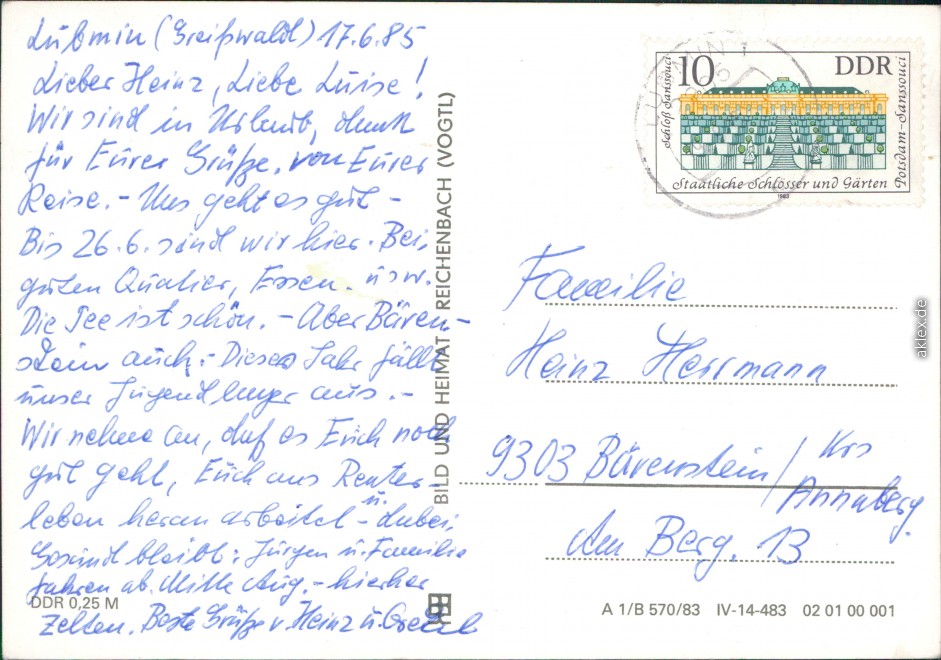 Lubmin (Greifswald) 17.6.85
Lieber Heinz, Liebe Luise!
Wir sind in Urlaub, dank
für Eurer Grüße, von Eurer
Reise. - Uns geht es gut -
Bis 26.6. sind wir hier. Bei,
guten Quatier, Essen. usw.
Die See ist schön. - Aber Bären-
stein auch. - Dieses Jahr fällt
unser Jugendlager aus. -
Wir nehme an, daß es Euch noch
gut geht, Euch ans Renter-
leben heran arbeitet - u. dabei
Gesund bleibt. Jürgen u. Familie
fahren ab. Mitte Aug. - hierher
Zelten. Beste Grüße v. Heinz u.
BILD UND HEIMAT REICHENBACH (VOGTL)
DDR 0,25 M
10 DDR
Schloß Sanssouci
Potsdam-Sanssouci
Staatliche Schlösser und Gärten
1983
LUBMIN
Familie
Heinz Herrmann
9303 Bärenstein/Krs
Annaberg.
Am Berg. 13
A 1/B 570/83 IV-14-483 02 01 00 001
aklex.de